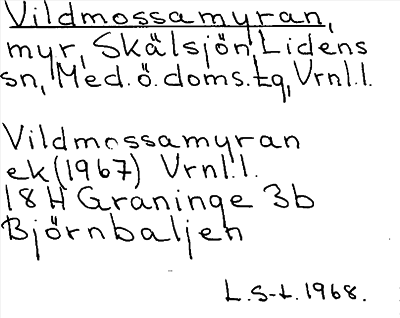 Vildmossamyran,
myr, Skälsjön, Lidens
sn, Med. ö. doms. tg, Vrnl. l.
Vildmossamyran
ek (1967) Vrnl. l.
18 H Graninge 3b
Björnbaljen
L. S-t. 1968.